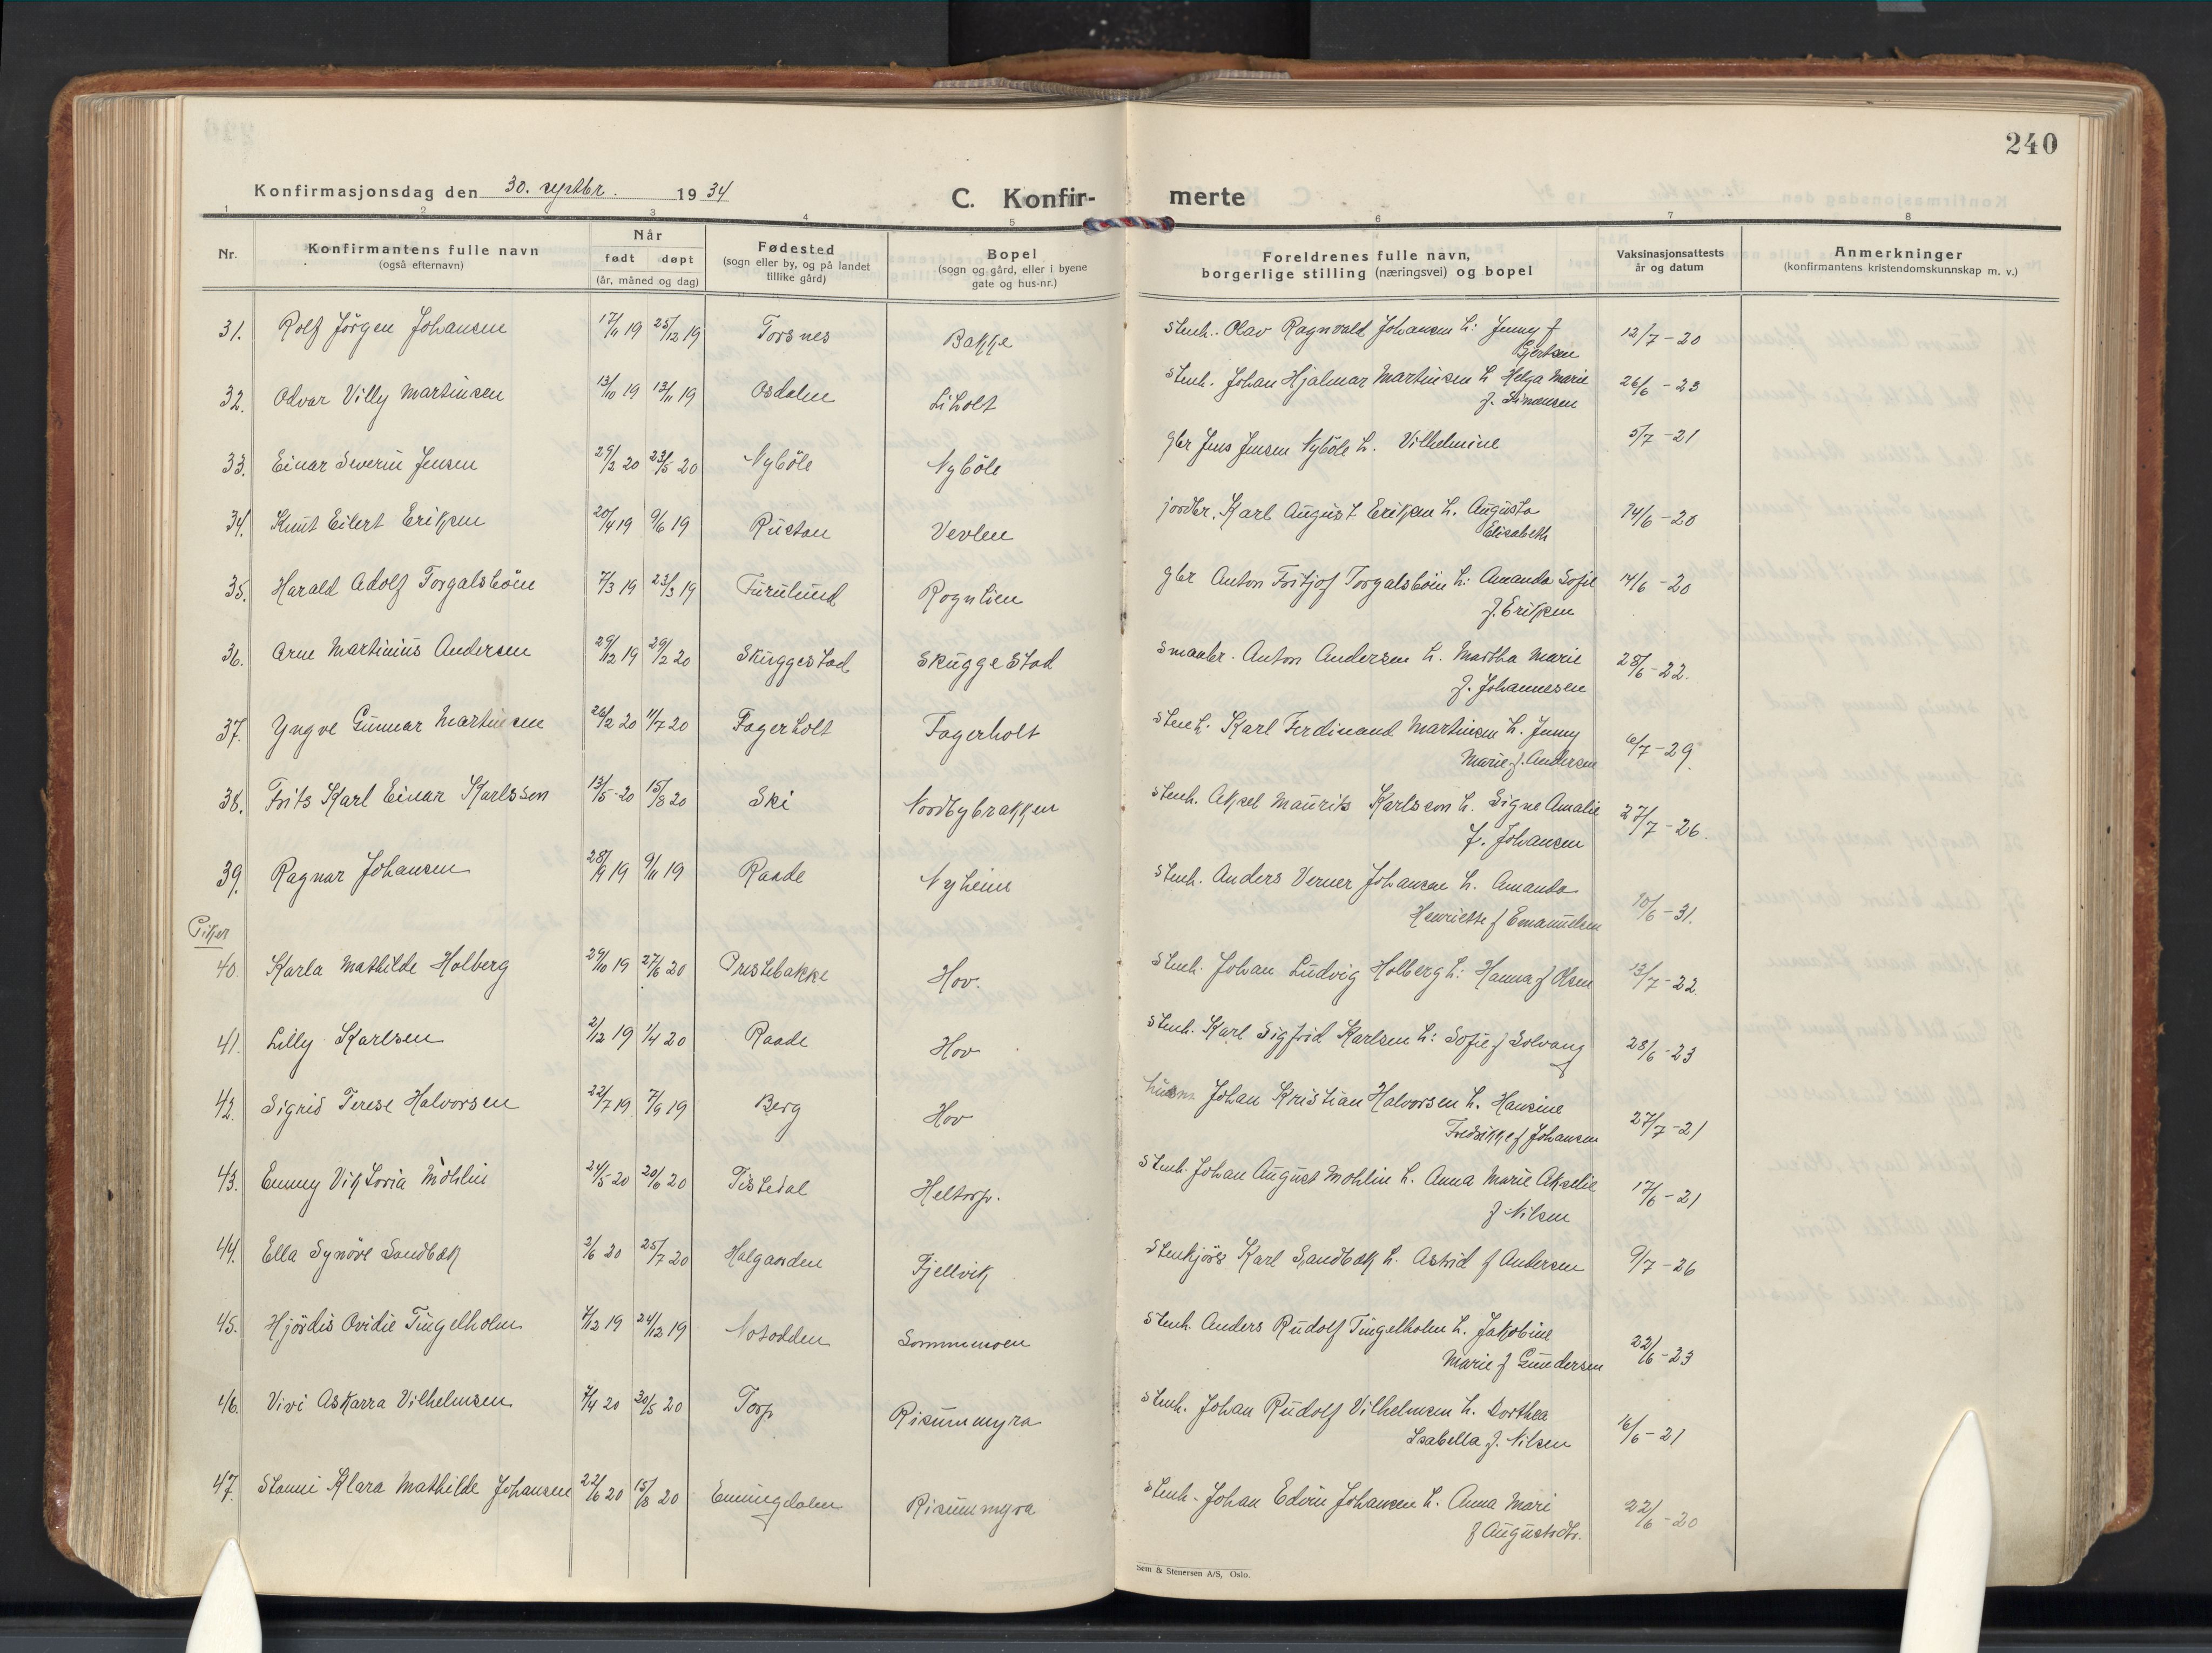 240
Konfirmasjonsdag den 30. septbr. 1934
C. Konfir- merte
1 2 3 4 5 6 7 8
Nr.
Konfirmantens fulle navn
(også efternavn)
Når
født døpt
(år, måned og dag)
Fødested
(sogn eller by, og på landet
tillike gård)
Bopel
(sogn og gård, eller i byene
gate og hus-nr.)
Foreldrenes fulle navn,
borgerlige stilling (næringsvei) og bopel
Vaksinasjonsattests
år og datum
Anmerkninger
(konfirmantens kristendomskunnskap m. v.)
31. Rolf Jörgen Johansen 17/11 19 25/12 19 Torsnes Bakke Stenh. Olav Ragnvald Johansen h: Jenny f 12/7-20
Gjertsen
32. Odvar Villy Martinsen 13/10 19 13/11 19 Osdalen Liholt Stenh. Johan Hjalmar Martinsen h Helga Marie 26/6-23
f. Simensen
33. Einar Severin Jensen 29/2 20 23/5 20 Nyböle Nyböle gbr Jens Jensen Nyböle h. Vilhelmine 5/7-21
34. Knut Eilert Eriksen 20/4 19 9/6 19 Rustan Vevlen jordbr. Karl August Eriksen h. Augusta 14/6-20
Elisabeth
35. Harald Adolf Torgalsböen 7/3 19 23/3 19 Furulund Rognlien gbr Anton Fritjof Torgalsböen h: Amanda Sofie 14/6-20
f. Eriksen
36. Arne Martinius Andersen 29/12 19 29/2 20 Skuggestad Skuggestad Smaabr. Anton Andersen h. Martha Marie 28/6-22.
f. Johannesen
37. Yngve Gunnar Martinsen 26/2 20 11/7 20 Fagerholt Fagerholt Stenh. Karl Ferdinand Martinsen h. Jenny 6/7-29
Marie f. Andersen
38. Frits Karl Einar Karlssen 13/5-20 15/8 20 Ski Nordbybrakken Stenh. Aksel Maurits Karlsson h. Signe Amalie 27/7-26.
f. Johansen
39. Ragnar Johansen 28/9 19 9/11 19 Raade Nyheim Stenh. Anders Verner Johansen h. Amanda 10/6-31.
Henriette f Emanuelsen
Piker
40. Karla Mathilde Holberg 29/10 19 27/6 20 Prestebakke Hov. Stenh. Johan Ludvig Holberg h: Hanna f Olsen 13/7-22.
41. Lilly Karlsen 2/12 19 1/4 20 Raade Hov Stenh. Karl Sigfrid Karlsen h: Sofie f Solvang 28/6-23
42. Sigrid Terese Halvorsen 22/7 19 7/9 19 Berg Hov husm. Johan Kristian Halvorsen h. Hansine 27/7-21
Fredrikke f Johansen
43. Emmy Viktoria Möhlin 24/5 20 20/6 20 Tistedal Heltorp. Stenh. Johan August Mohlin h. Anna Marie Akselie 17/6-21
f Nilsen
44. Ella Synöve Sandbæk 2/6 20 25/7 20 Halganden Fjellvik Stenkjörs Karl Sandbæk h. Astrid f Andersen 9/7-26
45. Hjördis Ovidie Tingelholm 7/12 19 24/12 19 Notodden Sommumoen Stenh. Anders Rudolf Tingelholm h. Jakobine 22/6-23
Marie f Gundersen
46. Vivi Askarra Vilhelmsen 7/4 20 30/5 20 Torp Risummyra Stenh. Johan Rudolf Vilhelmsen h. Dorthea 16/6-21
Isabella f. Nilsen
47. Stanni Klara Mathilde Johansen 22/6 20 15/8 20 Enningdalen Risummyra Stenh. Johan Edvin Johansen h. Anna Mari 22/6-20
f Augustsdtr.
Sem & Stenersen A/S, Oslo.